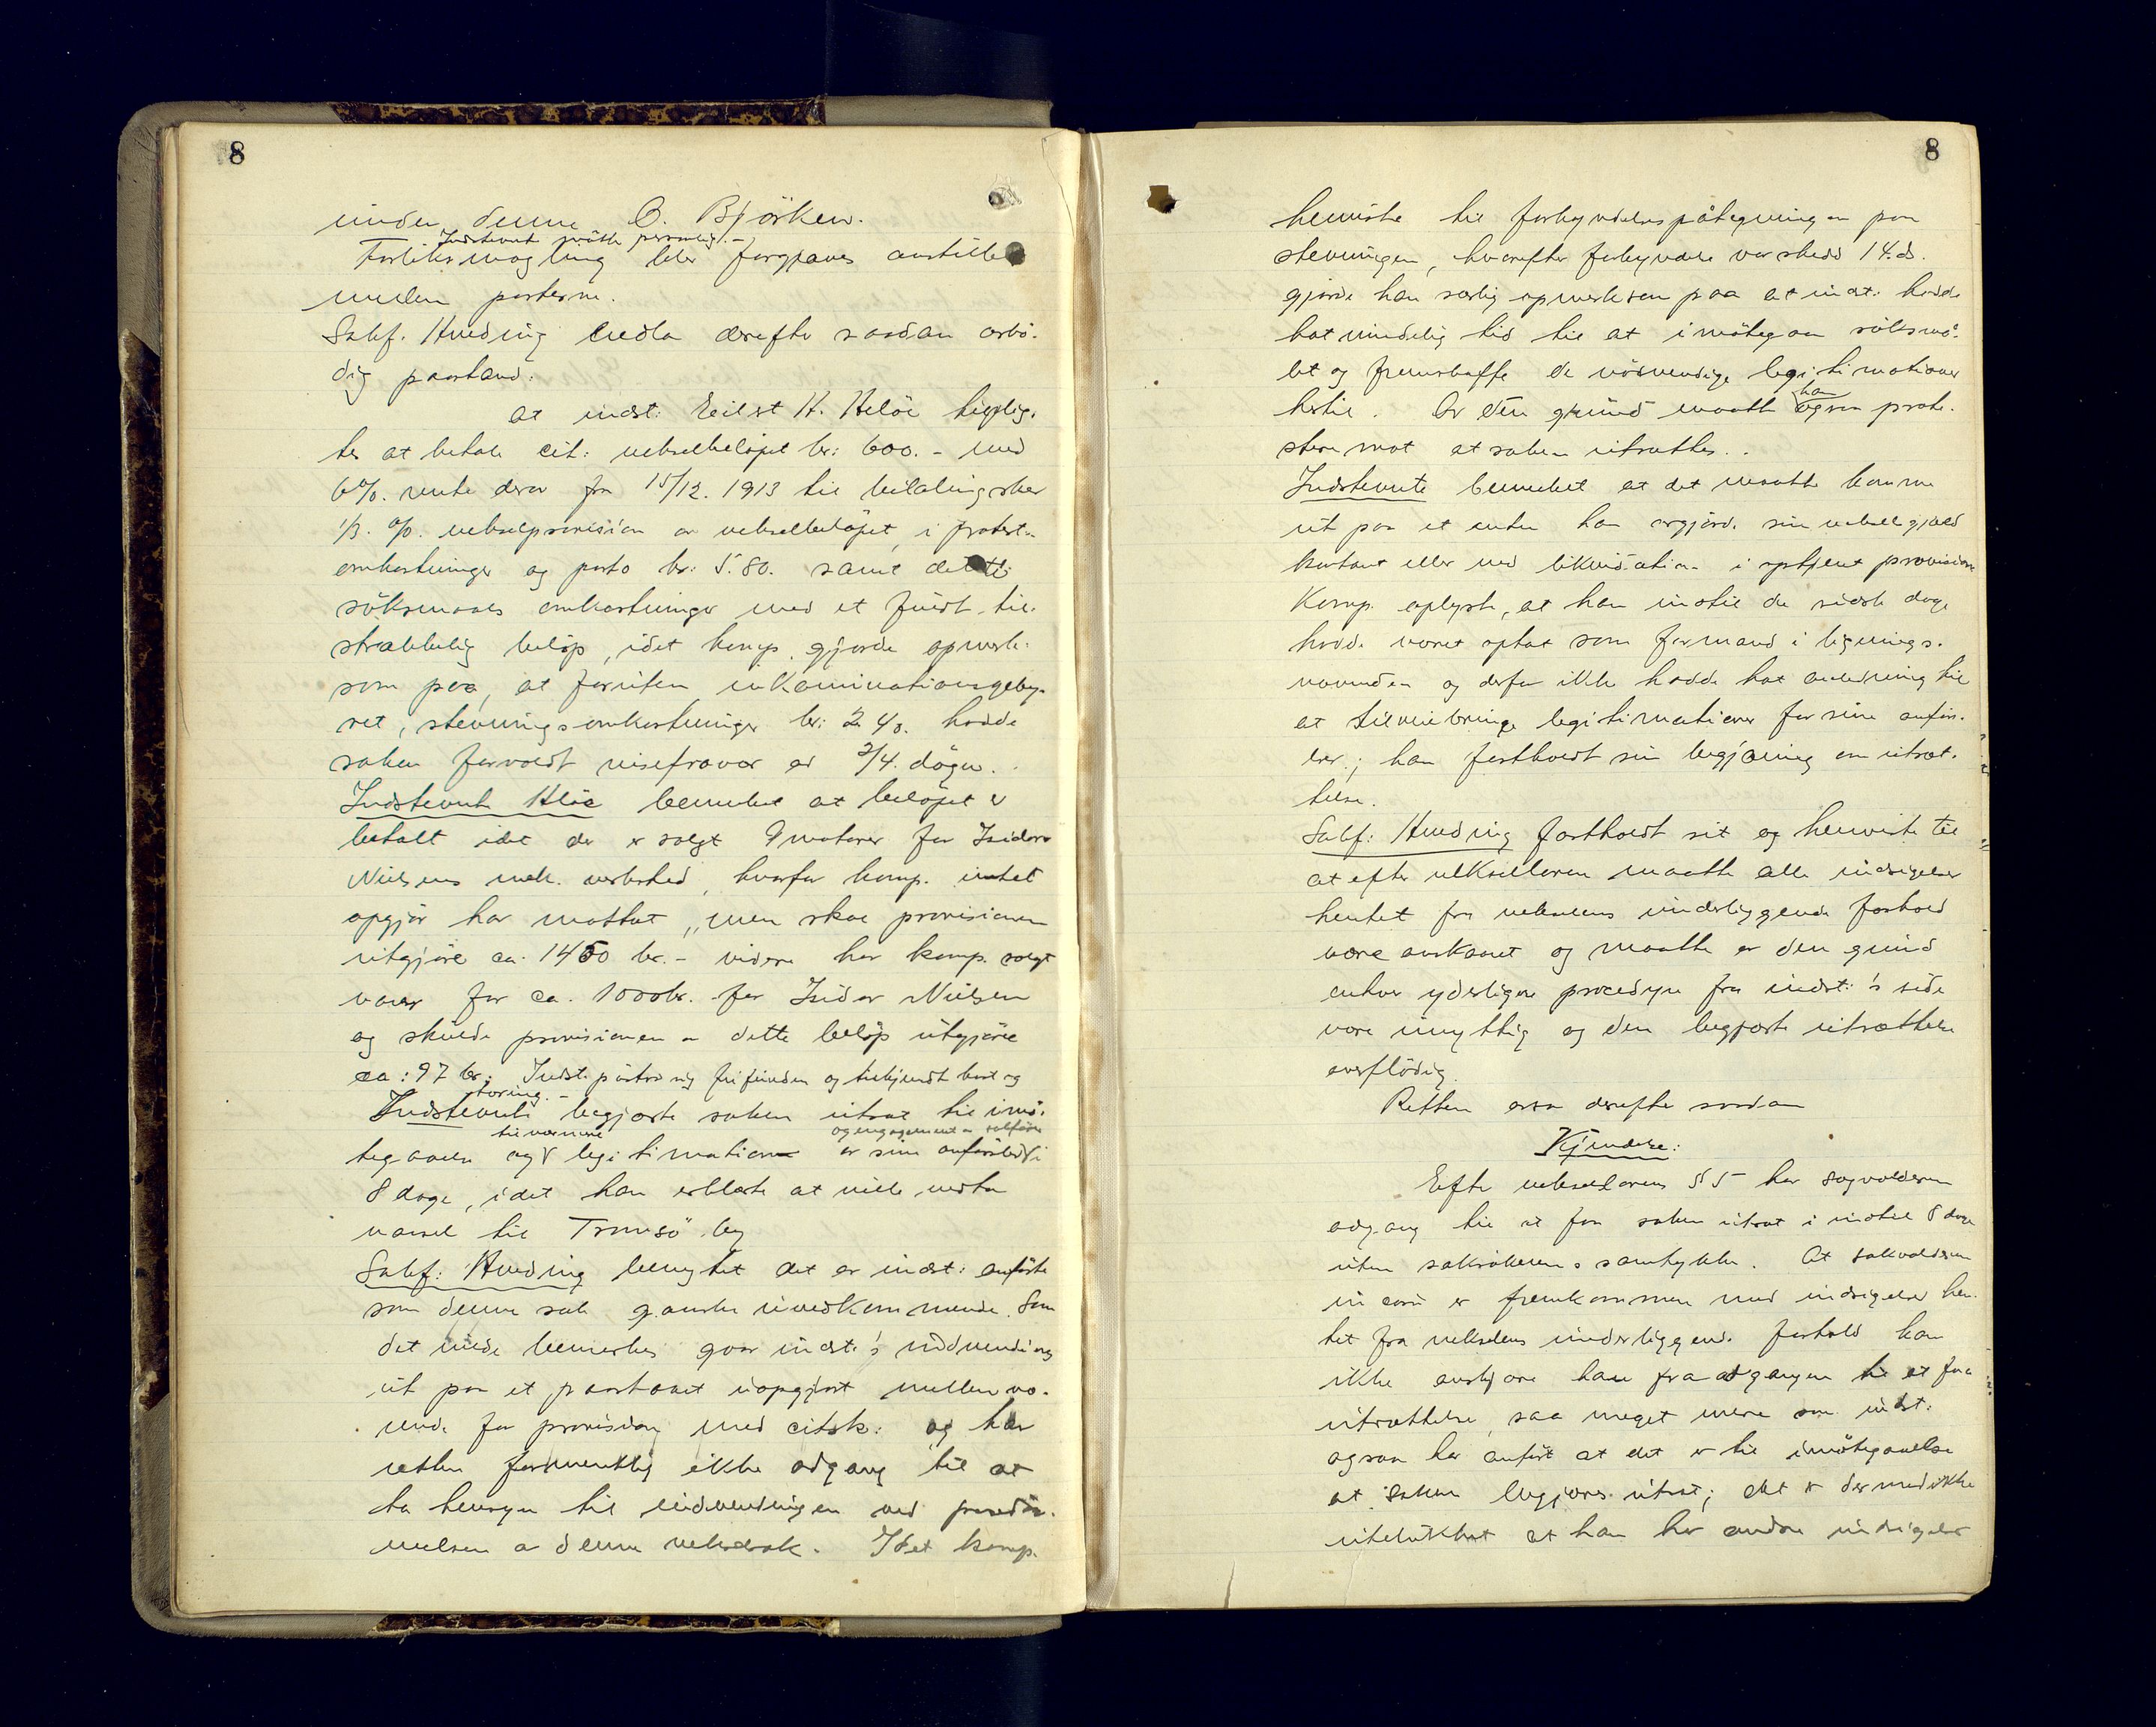 8
under denne O. Björken.
Indstevnte mötte personlig. -
Forliksmægling blev forgjæves anstillet
mellem parterne.
Sakf. Hveding nedla derefter saadan ærbö-
dig paastand:
at indst: Eilert H. Heløe tilplig-
tes at betale cit: vekselbeløpet kr: 600. - med
6%. rente derav fra 15/12. 1913 til betaling sker
1/3. %. vekselprovision av vekselbeløpet, i protest-
omkostninger og porto kr: 5.80. samt dette
söksmaals omkostninger med et fuldt til-
strækkelig beløp, idet komp. gjorde opmerk-
som paa, at foruten inkaminationsgeby-
ret, stevningsomkostninger kr: 2.40. hadde
saken forvoldt reisefravær av 3/4. døgn.
Indstevnte Heløe bemerket at beløpet er
betalt idet der er solgt 9 motorer for Isidor
Nielsens mek. verksted, hvorfor komp. intet
opgjör har mottat, men skal provisionen
utgjöre ca. 1450 kr. - videre har komp. solgt
varer for ca. 1000 kr. for Isidor Nielsen
og skulde provisionen av dette beløp utgjöre
ca: 97 kr. Indst. paastod sig frifunden og tilkjendt kost og
tæring. -
Indstevnte begjærte saken utsat til imö-
til nærmere
og engagement av sakförer
tegaaelse og legitimation av sine anförsler i
8 dage, idet han erklærte at ville vedta
varsel til Tromsö by
Sakf: Hveding benegtet det av indst: anförte
som denne sak ganske uvedkommende. Som
det vilde bemerkes gaar indst:'s indvending
ut paa et paastaaet uopgjort mellemvæ-
rende for provision med citsk: og har
retten formentlig ikke adgang til at
ta hensyn til indvendingen ved paadöm-
melsen av denne vekselsak. Idet komp.
8
henviste til forkyndelsespåtegningen paa
stevningen, hvorefter forkyndelse var skedd 14. ds.
gjorde han særlig opmerksom paa at indst: hadde
hat rundelig tid til at imötegaa söksmå-
let og fremskaffe de nödvendige legitimationer
hertil. Av den grund maatte
han
ogsaa prote-
stere mot at saken utsattes.
Indstevnte bemerket at det maatte komme
ut paa et enten han avgjörde sin vekselgjæld
kontant eller ved likvidation i optjent provision
Komp. oplyste, at han indtil de sidste dage
hadde været optat som formand i lignings-
nævnden og derfor ikke hadde hat anledning til
at tilveiebringe legitimationer for sine anförs-
ler; han fastholdt sin begjæring om utsæt-
telse.
Sakf: Hveding fastholdt sit og henviste til
at efter vekselloven maatte alle indsigelser
hentet fra vekselens underliggende forhold
være avskaaret og maatte av den grund
enhver yderligere procedyre fra indst:'s side
være unyttig og den begjærte utsættelse
overflödig.
Retten avsa derefter saadan
Kjendelse:
Efter vekselovens § 5 har sagvolderen
adgang til at faa saken utsat i indtil 8 dage
uten saksökerens samtykke. At sakvolderen
in casu er fremkommen med indsigelser hen-
tet fra vekselens underliggende forhold kan
ikke avskjære ham fra adgangen til at faa
utsættelse, saa meget mere som indst:
ogsaa har anfört at det er til imötegaaelse
at saken begjæres utsat; det er dermed ikke
utelukket at han har andre indsigelser